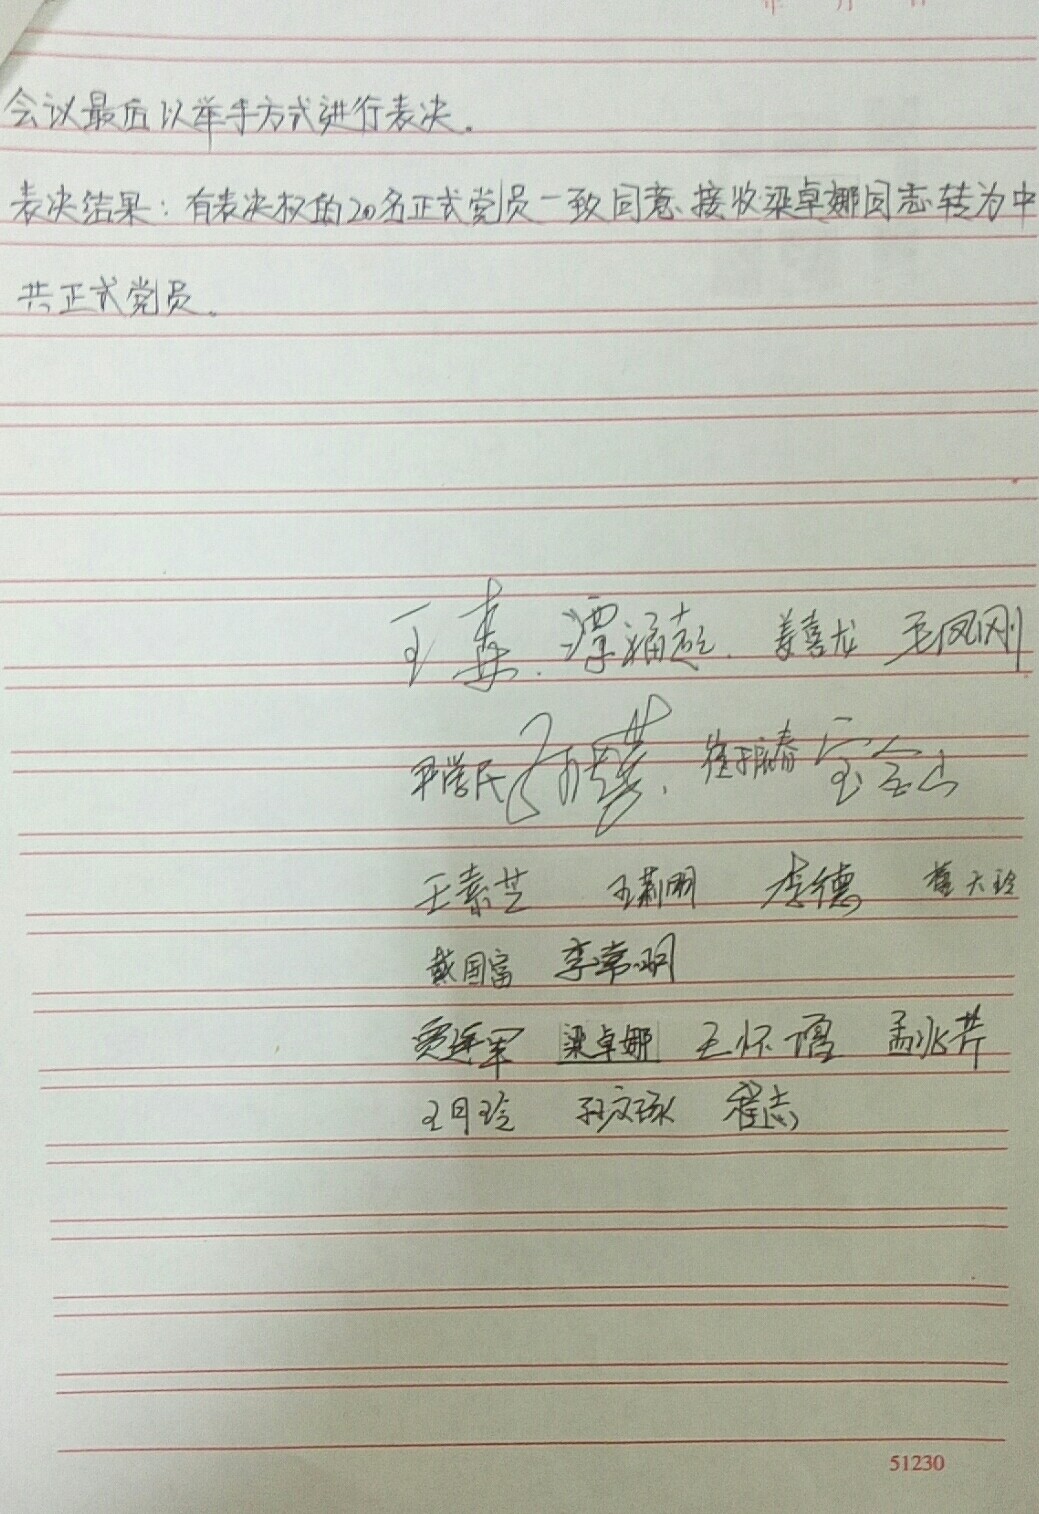 年 月 日
会议最后以举手方式进行表决。
表决结果：有表决权的20名正式党员一致同意、接收梁卓娜同志转为中
共正式党员。
王 谭福超 姜喜龙 毛凤刚
尹学民 宝金山
王素芝 王莉丽 李德
戴国富 李常明
贾连军 梁卓娜 王怀 孟兆芹
王月玲 孙文 程志
51230